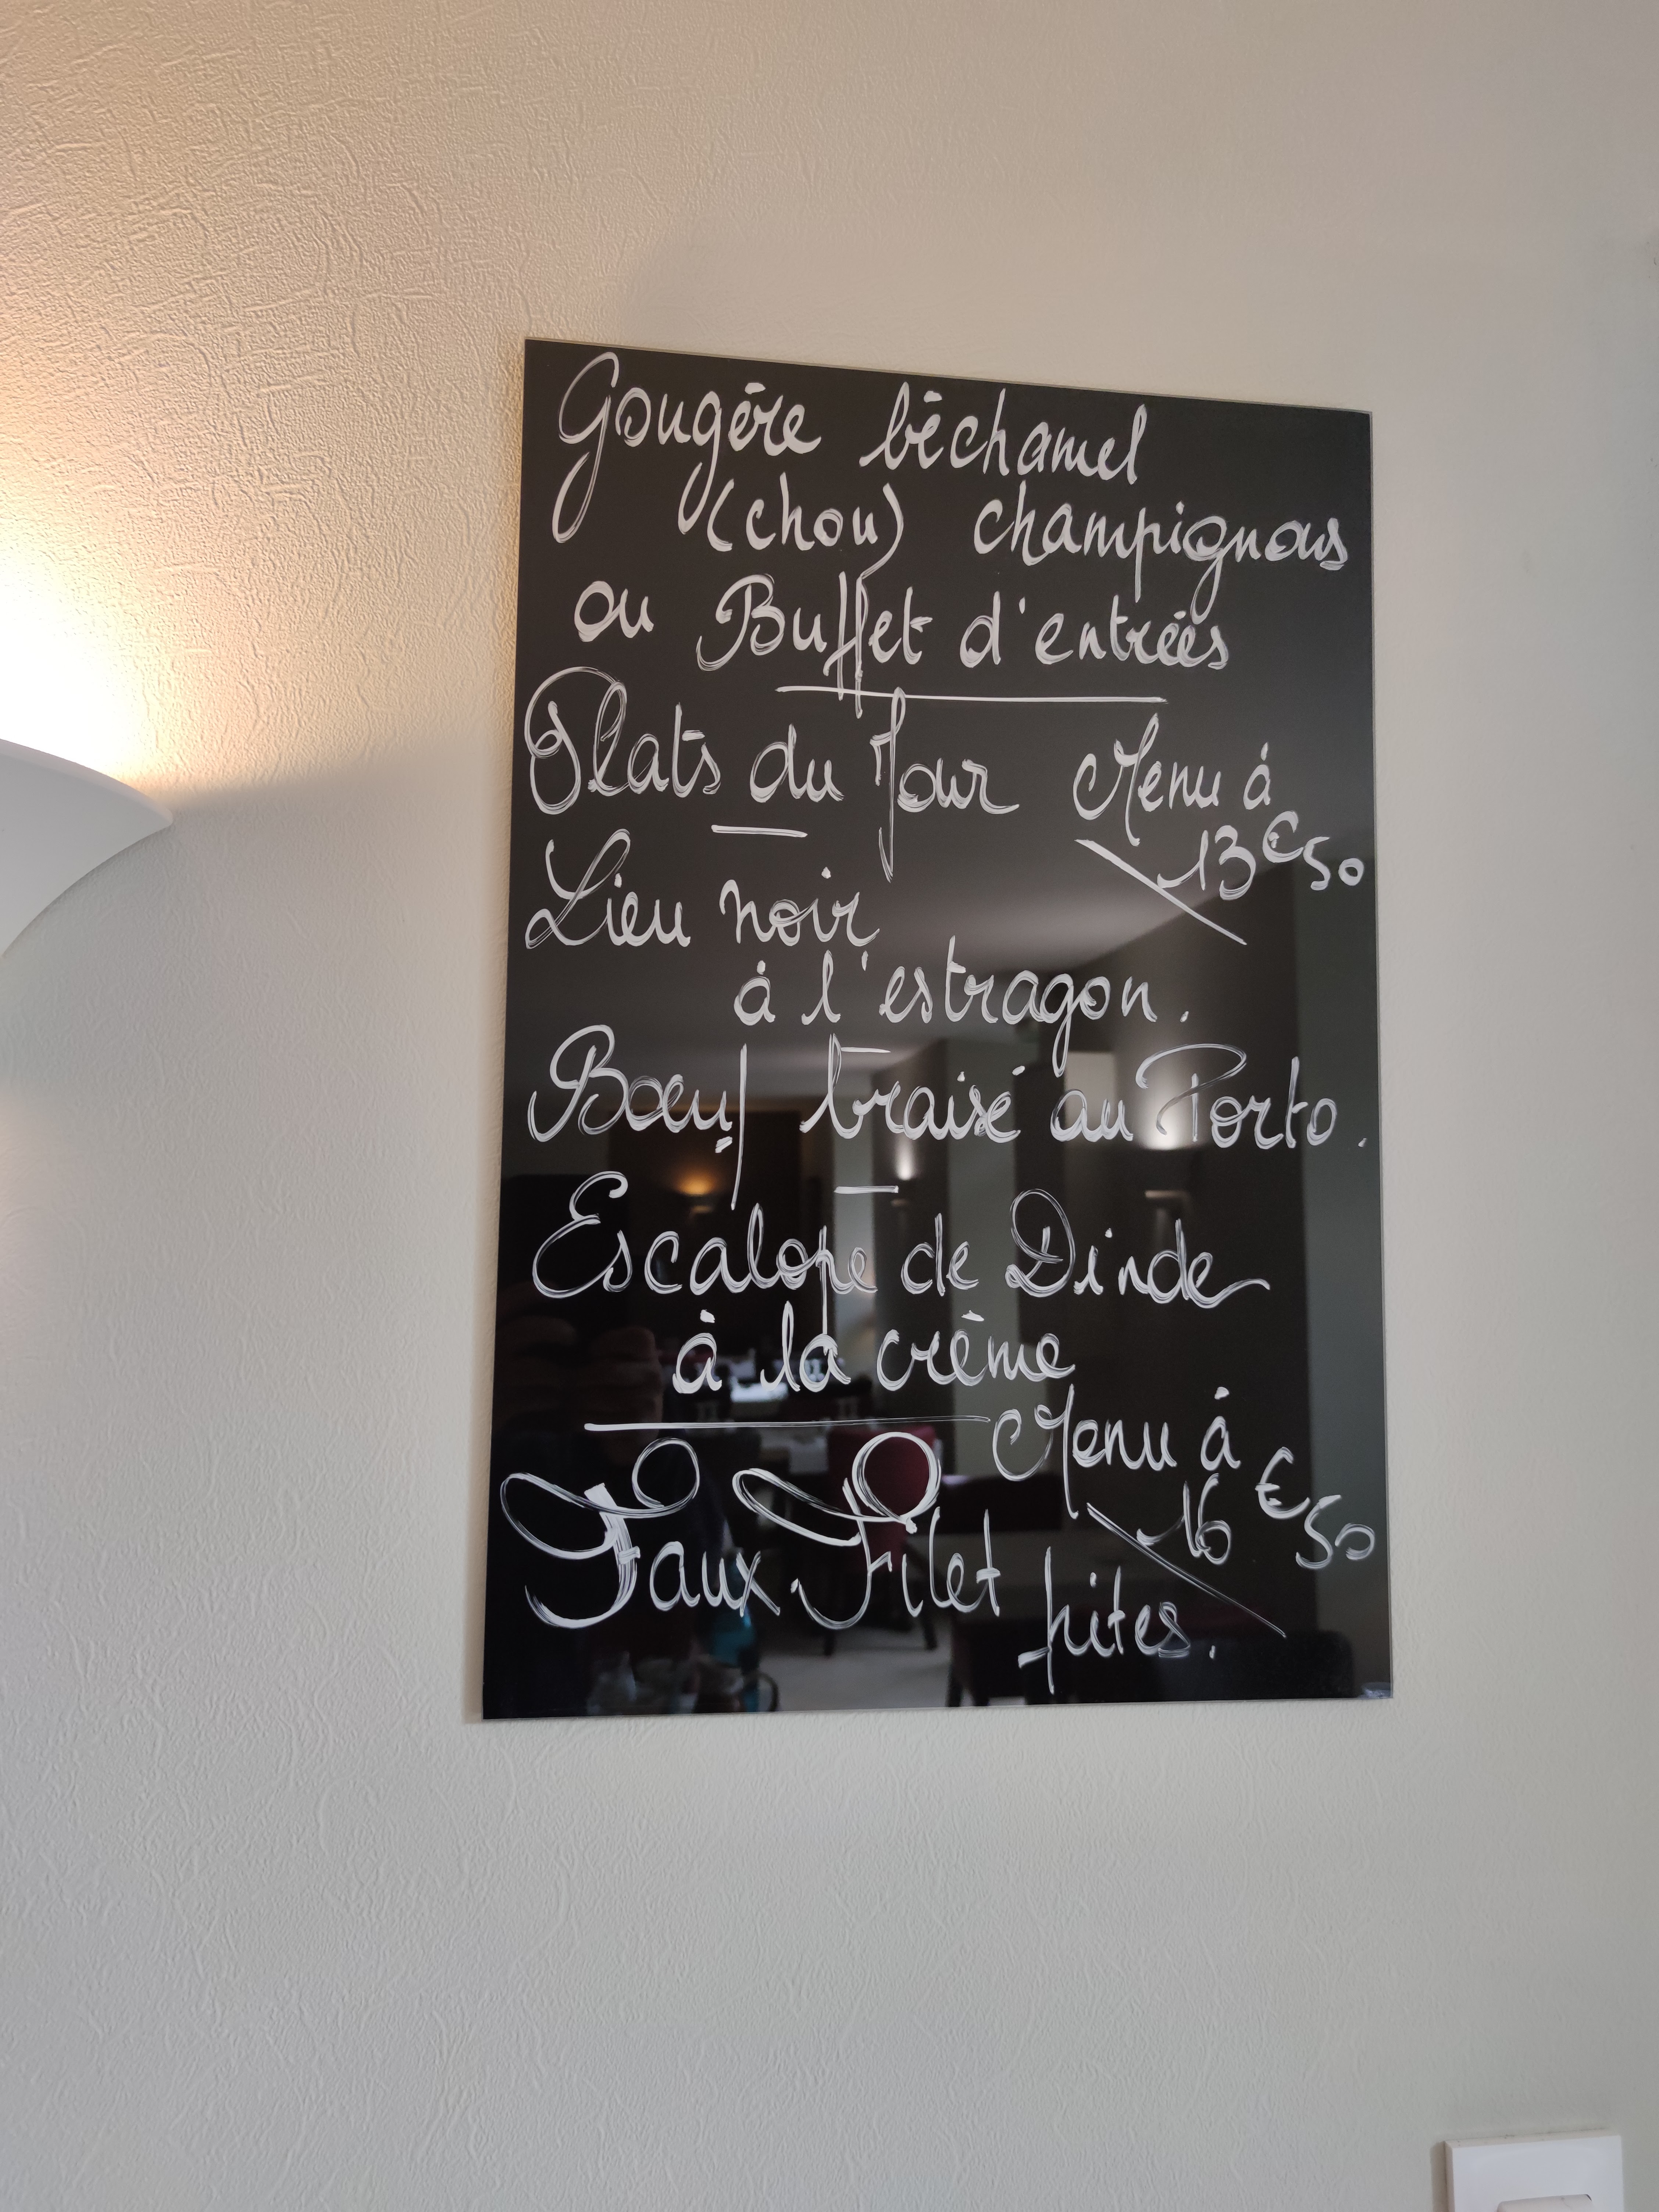 Gougère béchamel
(chou) champignons
ou Buffet d'entrées
Plats du Jour Menu à
13€50
Lieu noir
à l'estragon.
Bœuf braisé au Porto.
Escalope de Dinde
à la crème
Menu à
16€50
Faux Filet
frites.